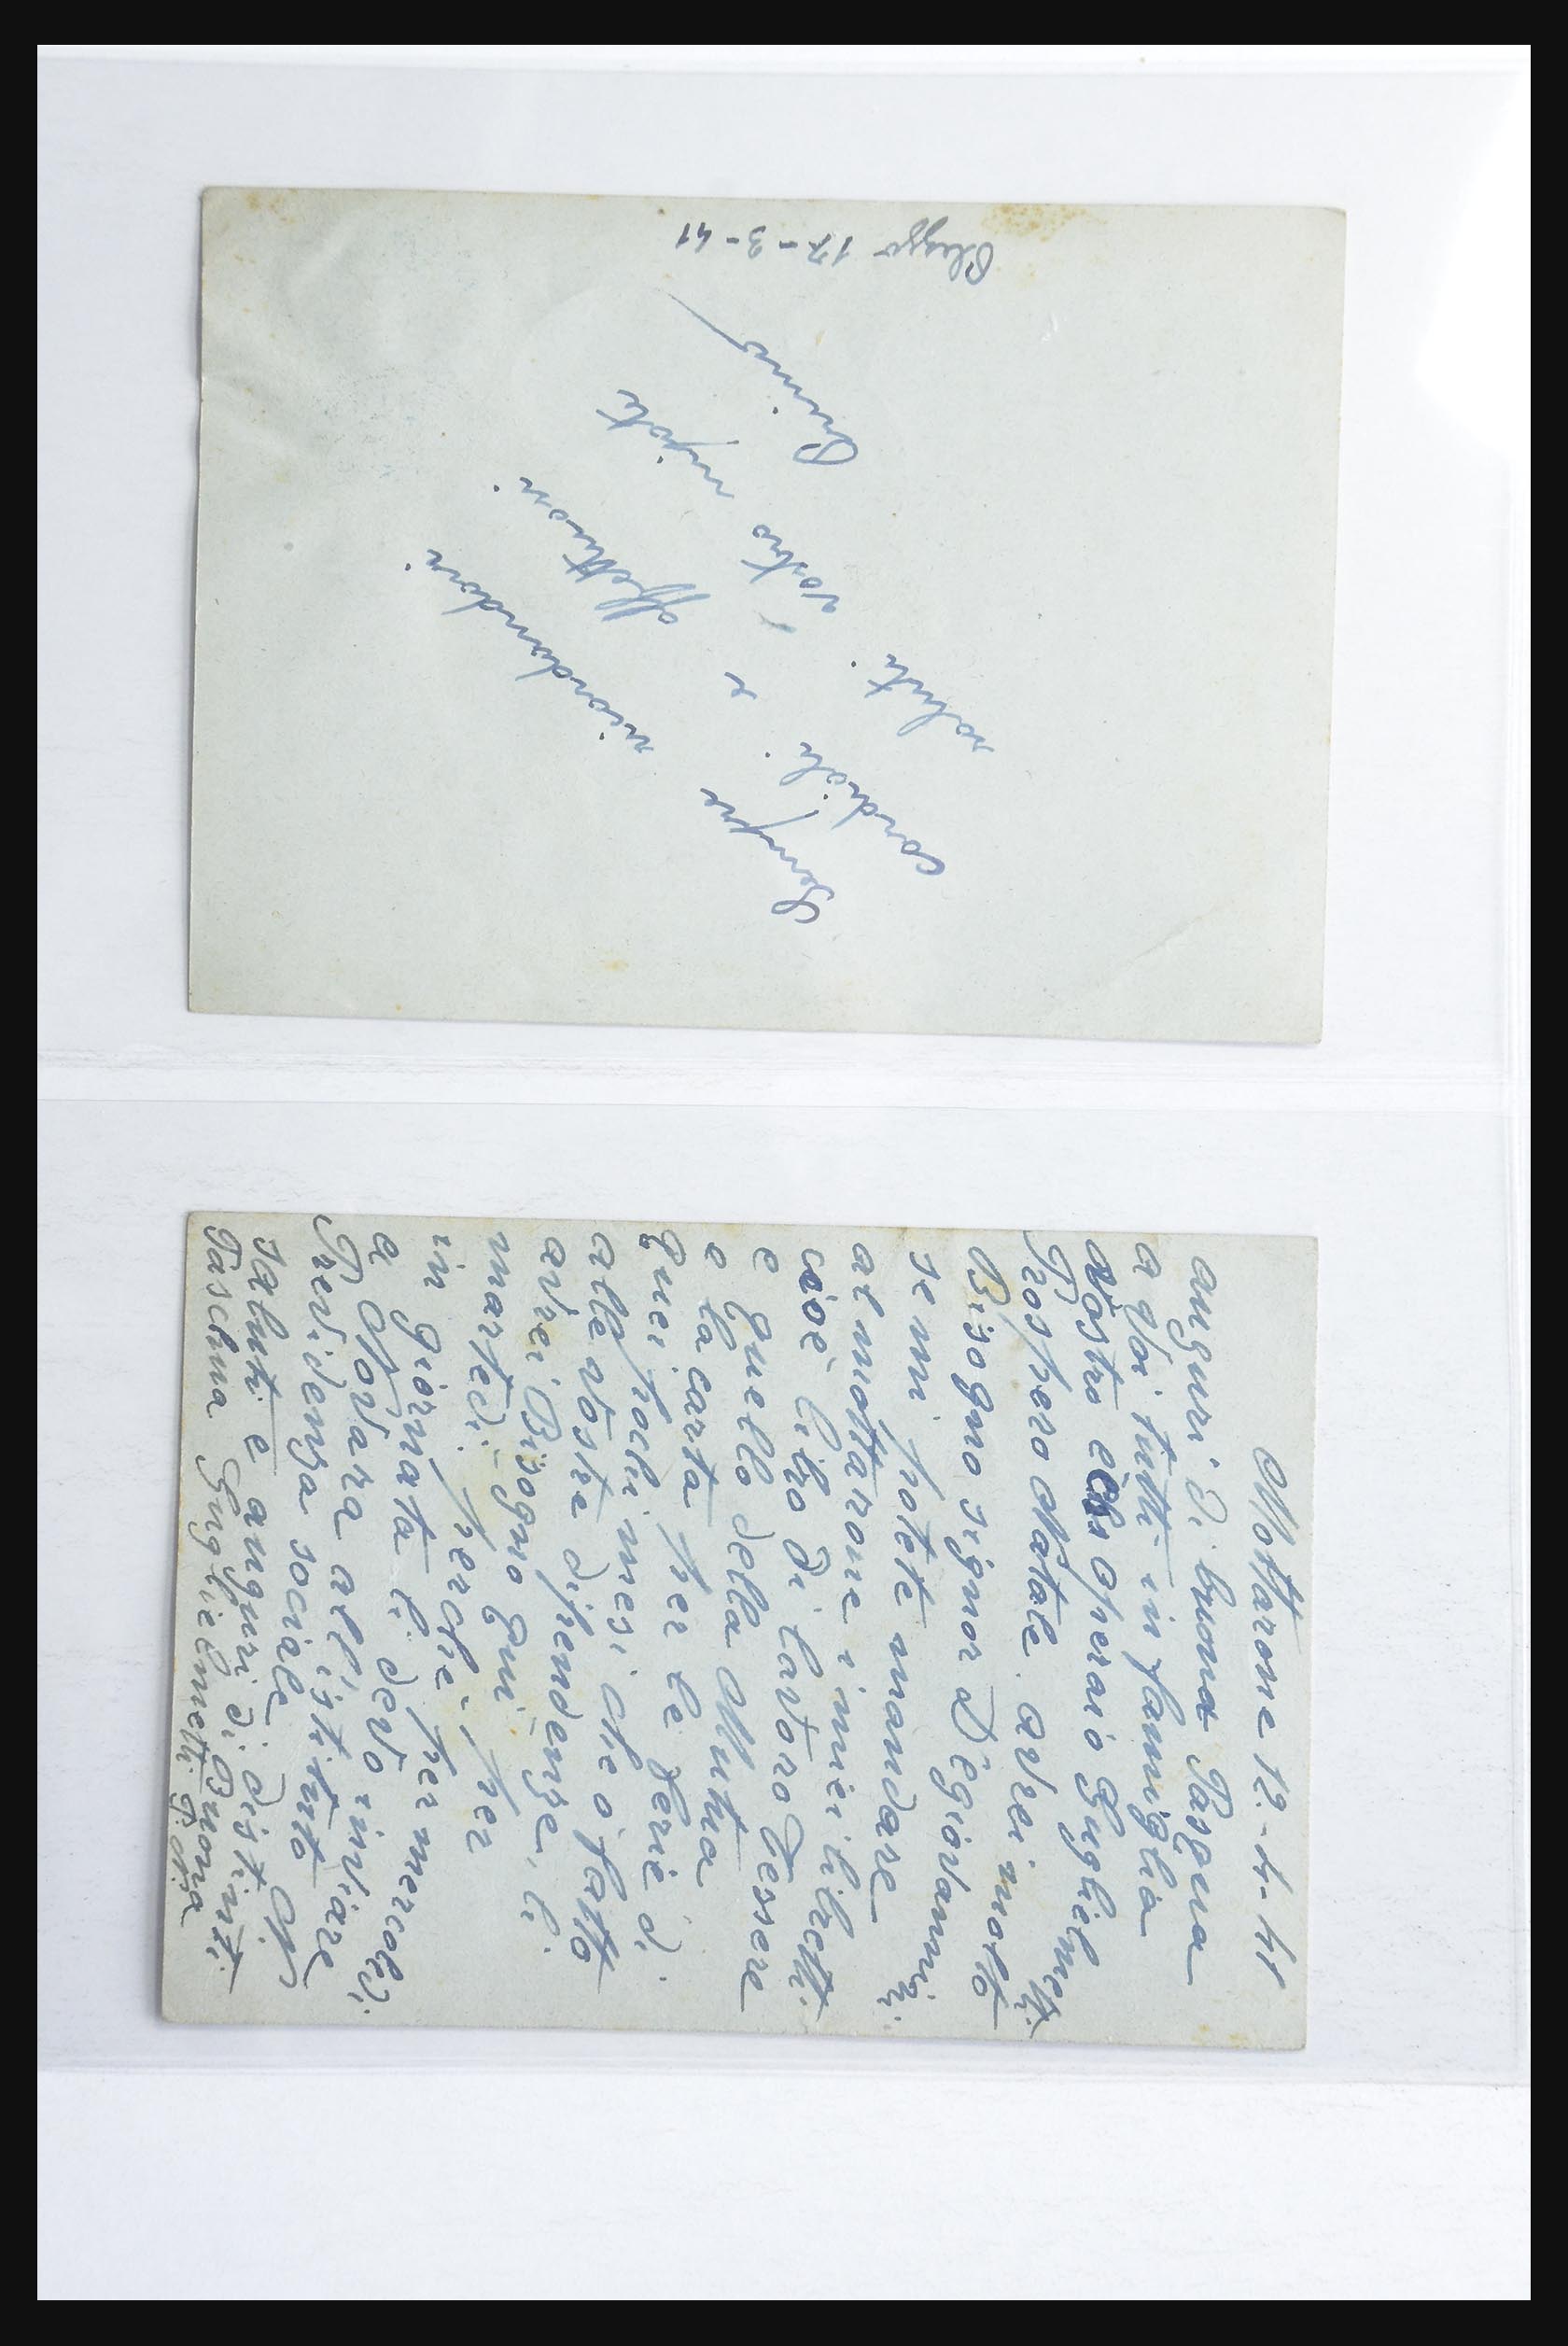 Oleggio 17-3-41
Sempre ricordandovi
cordiali e affettuosi
saluti. vostro nipote
Primo
Mottarone 12-4-41
auguri di buona Pasqua
a Voi tutti in famiglia
Vostro operaio Guglielmetti
Prospero Natale. avrei molto
Bisogno signor Degiovannini
se mi potete mandare
al mottarone i miei libretti
cioè libro di lavoro Tessere
e quello della Mutua
e la carta per le ferie di
quei pochi mesi che o fatto
alle vostre dipendenze, li
avrei Bisogno qui per
martedi- perche per mercoledi
in giornata li devo inviare
a Novara all'istituto
Previdenza sociale
saluti e auguri di distinti
Paschua Guglielmetti P. N.
Buona